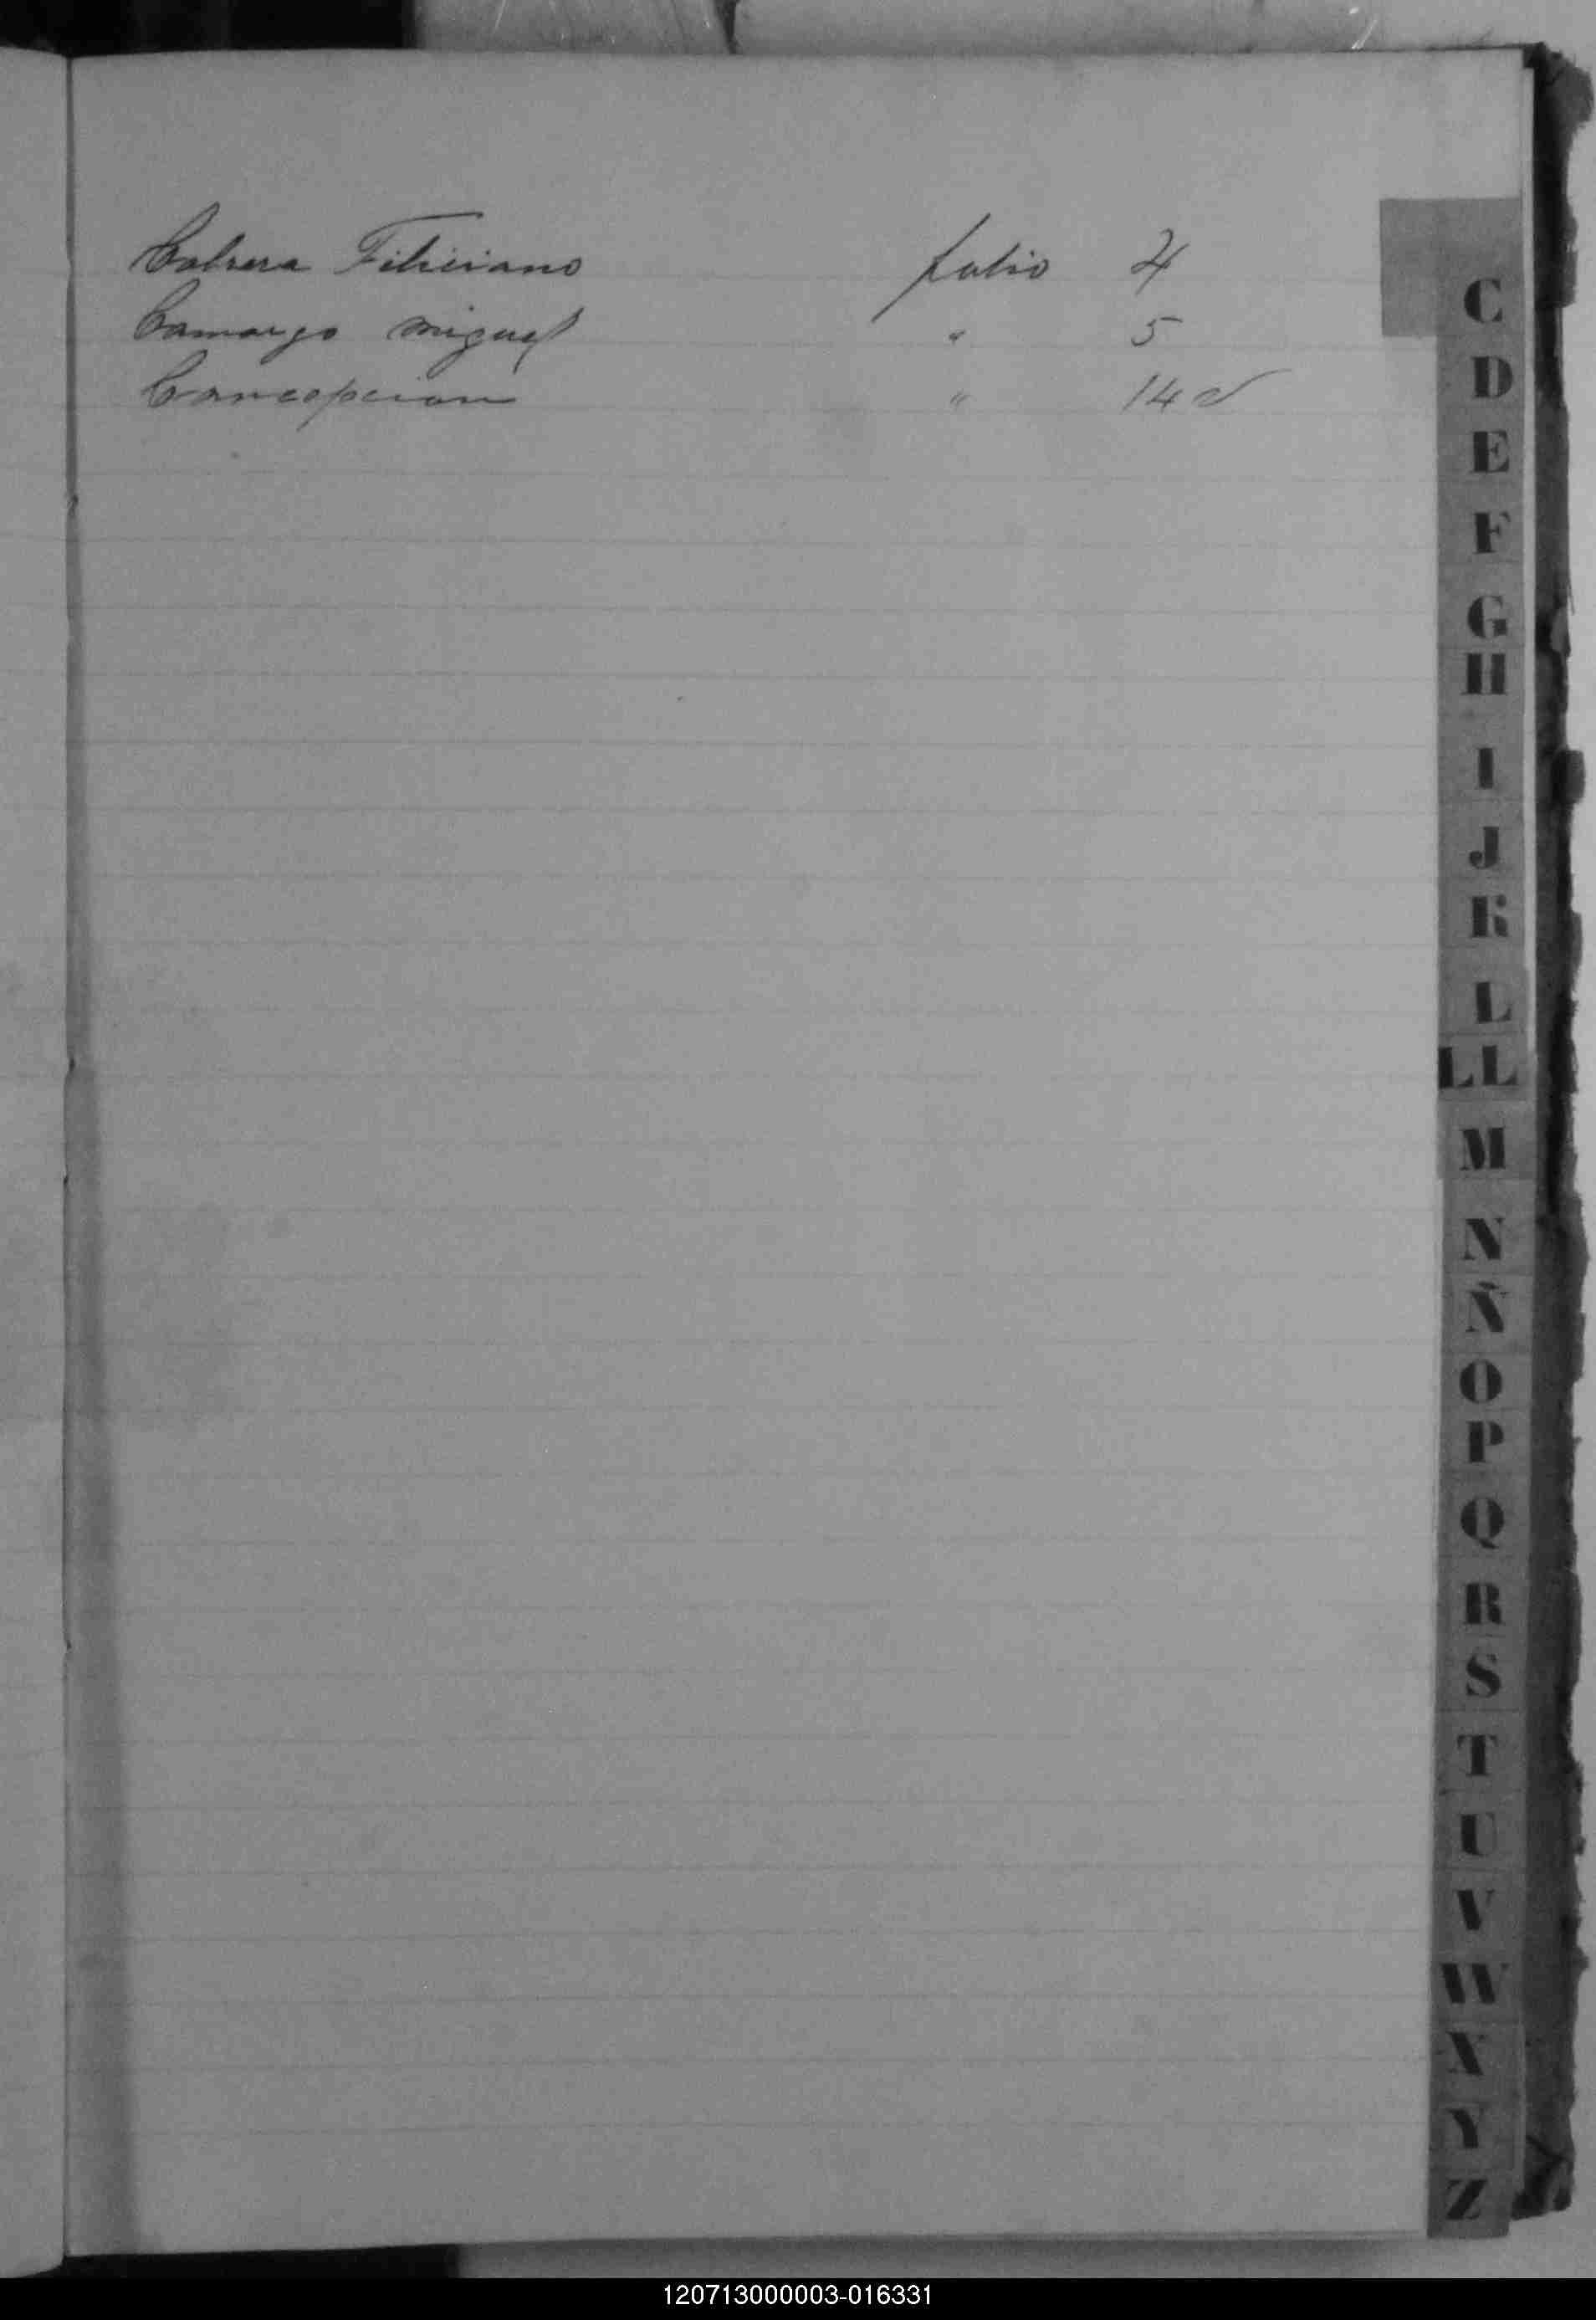 Cabrera Feliciano folio 4
Camargo Miguel " 5
Concepcion " 14 v
C
D
E
F
G
H
I
J
K
L
LL
M
N
Ñ
O
P
Q
R
S
T
U
V
W
X
Y
Z
120713000003-016331